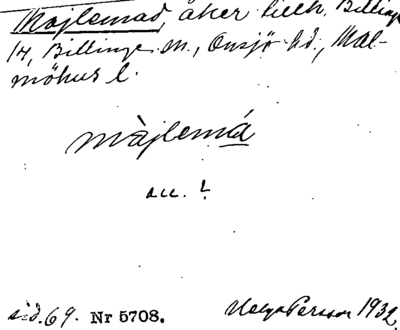 Majlemad, åker tillh. Billinge
14, Billinge sn., Onsjö hd., Mal-
möhus l.
màjlemá
acc. ?
sid. 69. Nr 5708. Helge Persson 1932.